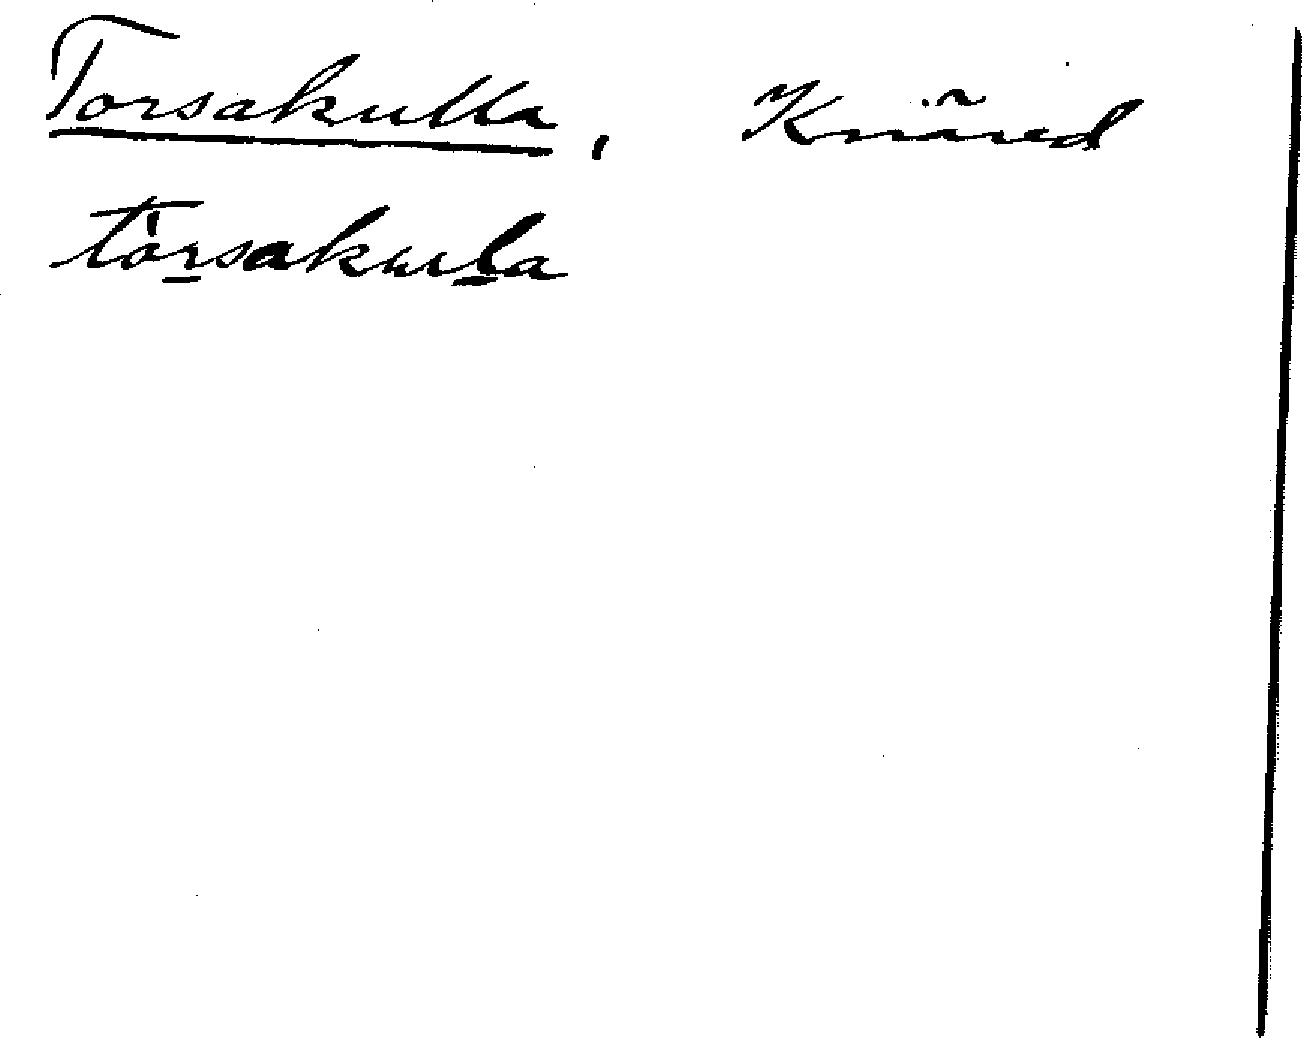 Torsakulla, Knäred
tòrsakula